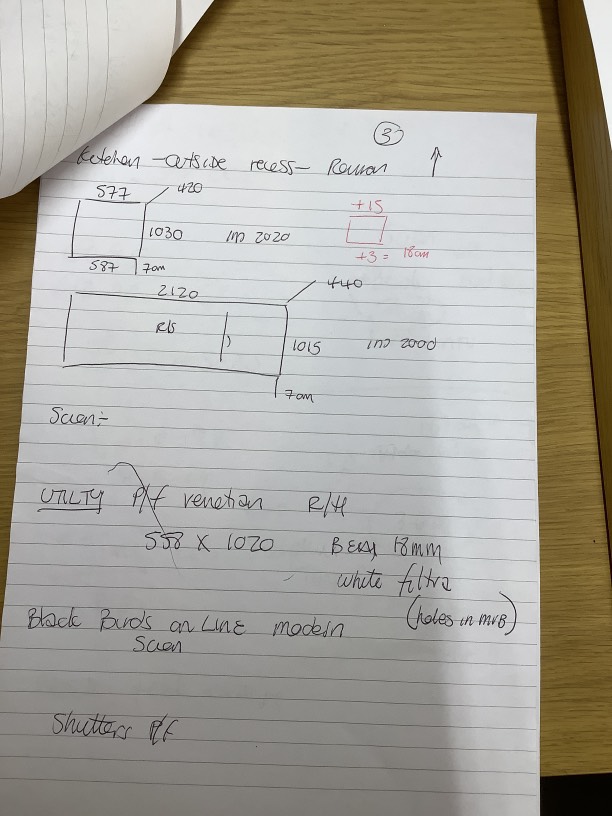 3
Kitchen - outside recess - Roman ↑
577 420
1030 IND 2020
+15
+3 = 18cm
587 7cm
2120 440
R/S
1015 IND 2000
7cm
UTILTY P/f venetian R/H
558 X 1020 18mm
white filtra
(holes in
Black Birds on LINE modern
Shutters P/F